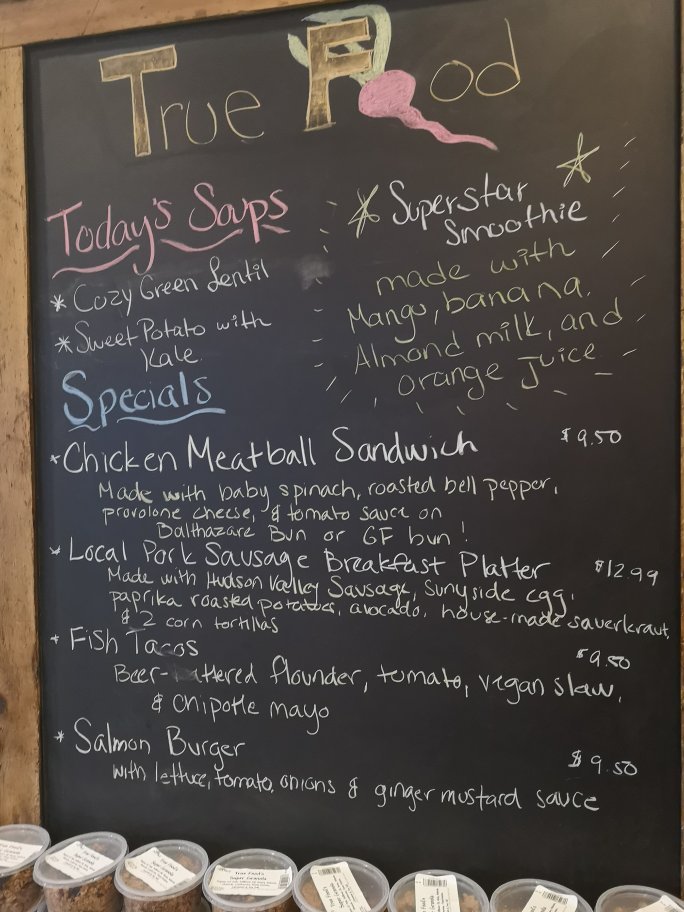 True Food
Today's Soups
* Cozy Green Lentil
* Sweet Potato with
Kale
* Superstar
Smoothie
made with
Mango, banana,
Almond milk, and
orange Juice
Specials
* Chicken Meatball Sandwich $9.50
Made with baby spinach, roasted bell pepper,
provolone cheese, & tomato sauce on
Balthazare Bun or GF bun!
* Local Pork Sausage Breakfast Platter $12.99
Made with Hudson Valley Sausage, sunyside egg,
paprika roasted potatoes, avocado, house-made sauerkraut,
& 2 corn tortillas
* Fish Tacos $9.50
Beer-battered flounder, tomato, vegan slaw,
& chipotle mayo
* Salmon Burger $9.50
with lettuce, tomato, onions & ginger mustard sauce
True Food's
Super Granola